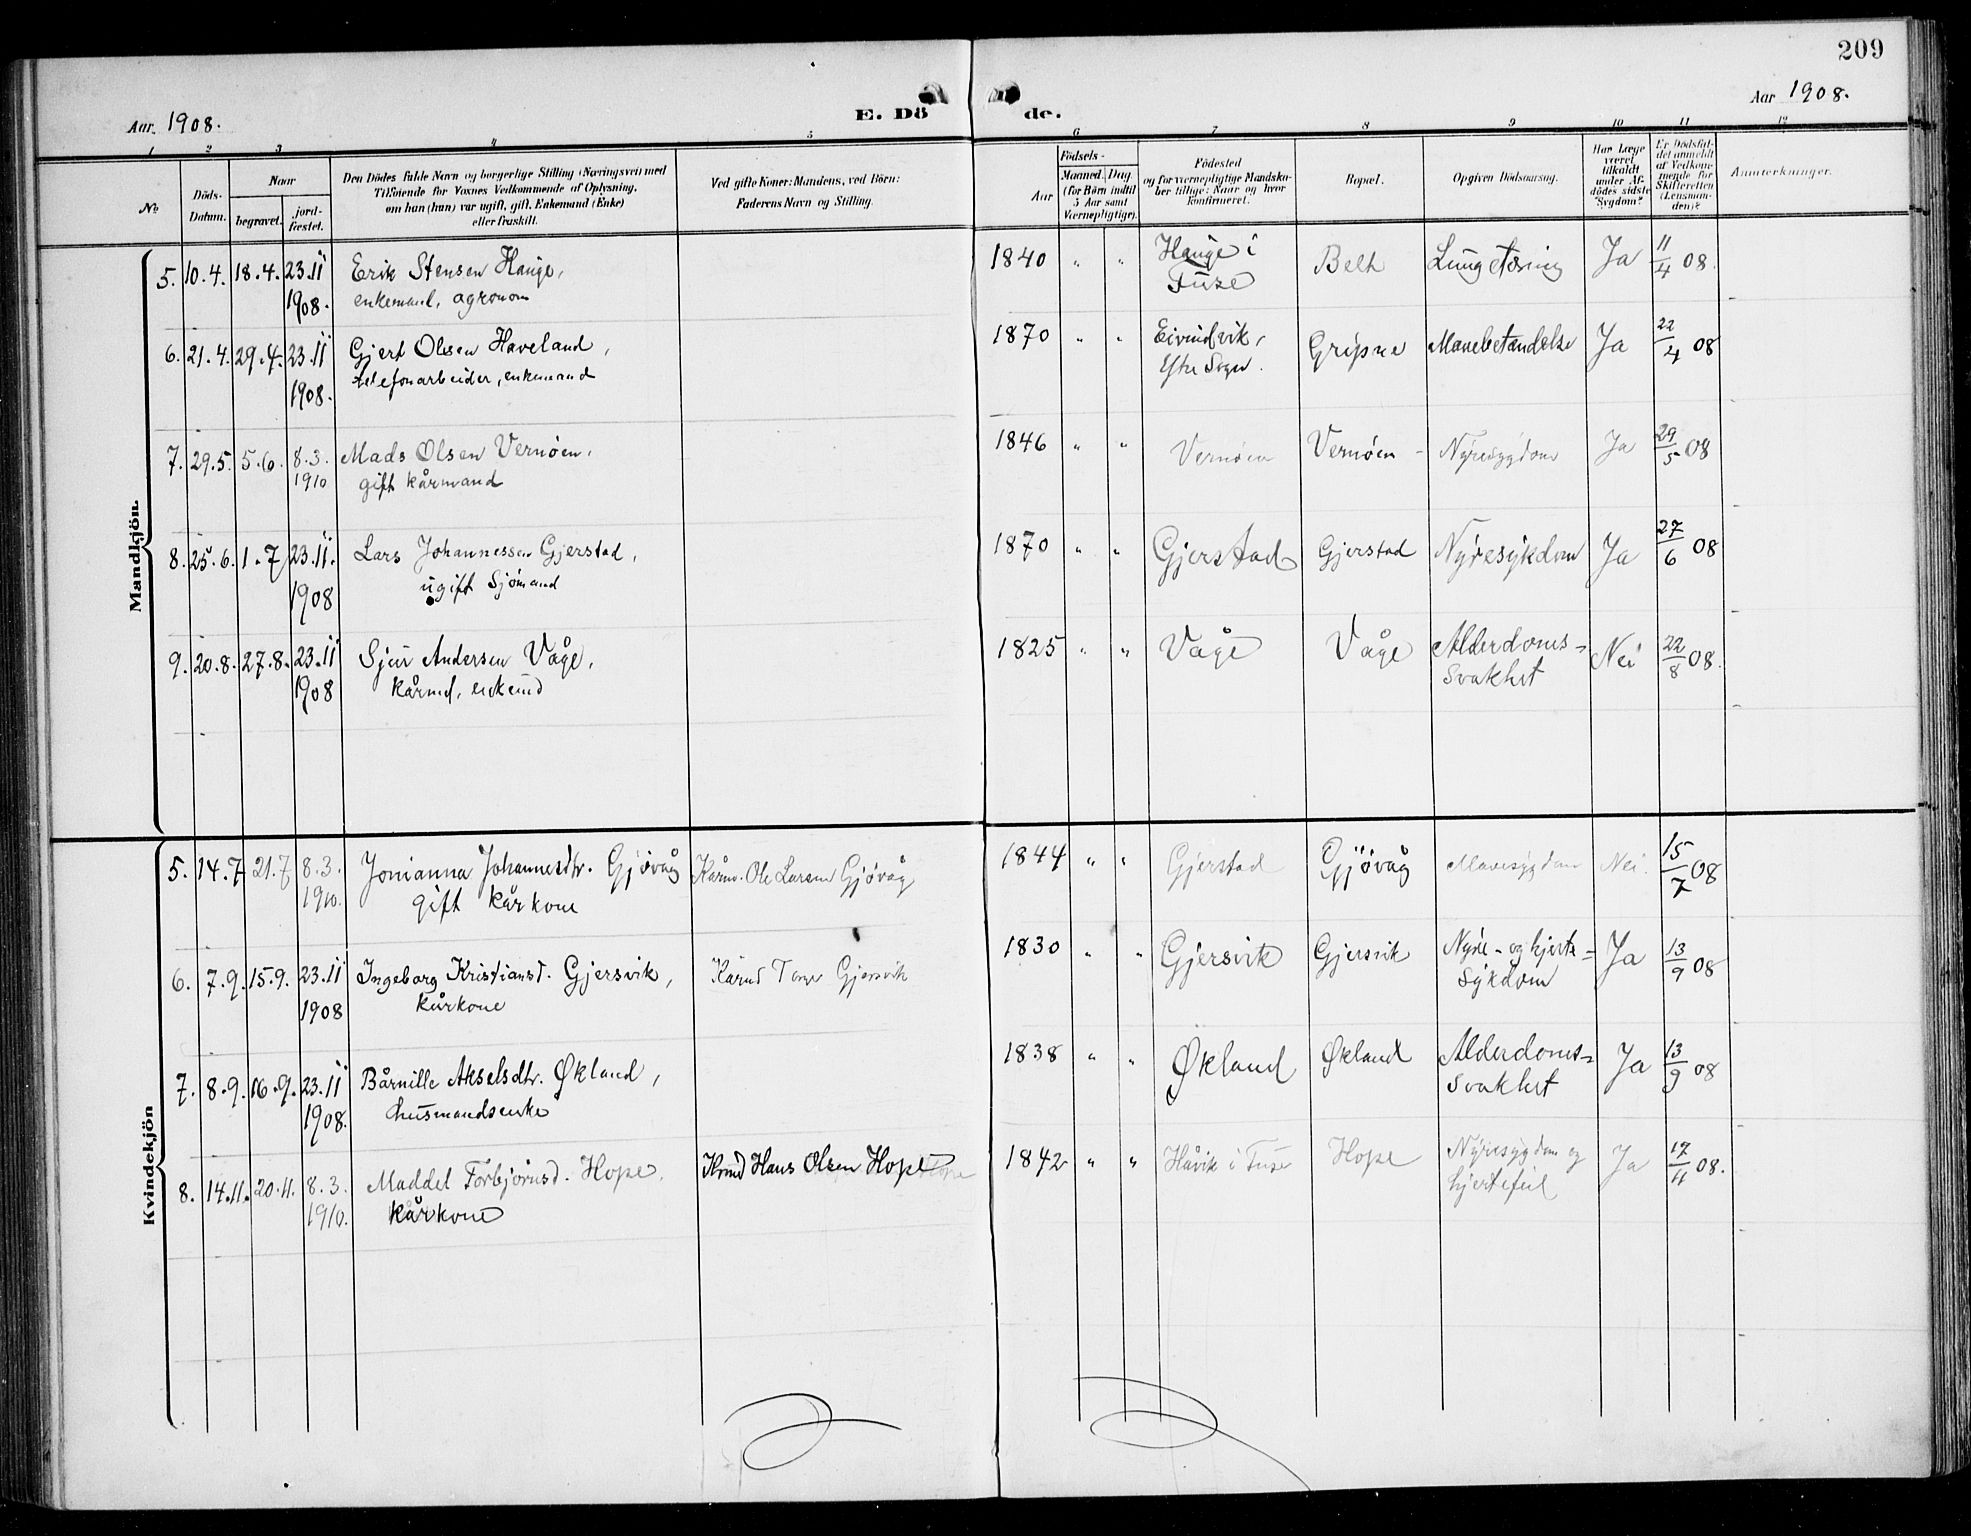 209
Aar 1908.
E. Dö de.
Aar 1908.
1 2 3 4 5 6 7 8 9 10 11 12
No
Döds-
Datum.
Naar
begravet.
jord-
fæstet.
Den Dödes fulde Navn og borgerlige Stilling (Næringsvei) med
Tilföiende for Voxnes Vedkommende af Oplysning,
om han (hun) var ugift, gift, Enkemand (Enke)
eller fraskilt.
Ved gifte Koner: Mandens, ved Börn:
Faderens Navn og Stilling.
Födsels-
Aar
Maaned. Dag
(for Börn indtil
5 Aar samt
Værnepligtige).
Födested
og for værnepligtige Mandska-
ber tillige: Naar og hvor
konfirmeret.
Bopæl.
Opgiven Dödsaarsag.
Har Læge
været
tilkaldt
under Af-
dödes sidste
Sygdom?
Er Dödsfal-
det anmeldt
af Vedkom-
mende for
Skifteretten
(Lensman-
den)?
Anmerkninger.
Mandkjön.
5. 10.4. 18.4. 23.11 Erik Stensen Hauge, 1840 " " Hauge i Belt Lungetæring Ja 11/4 08.
1908. enkemand, agronom Fuse
6. 21.4. 29.4. 23.11 Gjert Olsen Haveland, 1870 " " Eivindvik, Gripne Mavebetændelse Ja 22/4 08
1908. telefonarbeider, enkemand Ytre Sogn.
7. 29.5. 5.6. 8.3. Mads Olsen Vernøen, 1846 " " Vernøen Vernøen Nyresygdom Ja 29/5 08
1910 gift kårmand
8. 25.6. 1.7 23.11. Lars Johannessen Gjerstad, 1870 " " Gjerstad Gjerstad Nyresykdom Ja 27/6 08
1908 ugift Sjømand
9. 20.8. 27.8. 23.11 Sjur Andersen Våge, 1825 " " Våge Våge Alderdoms- Nei 22/8 08.
1908 kårmd, enkemd svakhet
Kvindekjön
5. 14.7 21.7 8.3. Jonianna Johannesdtr. Gjøvåg Kårm. Ole Larsen Gjøvåg 1844 " " Gjerstad Gjøvåg Mavesygdom Nei. 15/7 08
1910. gift kårkone
6. 7.9. 15.9. 23.11 Ingeborg Kristiansd. Gjersvik, Kårmd Gjersvik 1830 " " Gjersvik Gjersvik Nyre- og hjerte- Ja 13/9 08
1908 kårkone sykdom
7. 8.9. 16.9. 23.11 Bårnille Akselsdtr. Økland, 1838 " " Økland Økland Alderdoms- Ja 13/9 08
1908. husmandsenke svakhet
8. 14.11. 20.11. 8.3. Maddel Torbjørnsd. Hope, Hans Olsen Hope 1842 " " Håvik i Fuse Hope Nyresygdom og Ja 17/11 08.
1910. kårkone hjertefeil